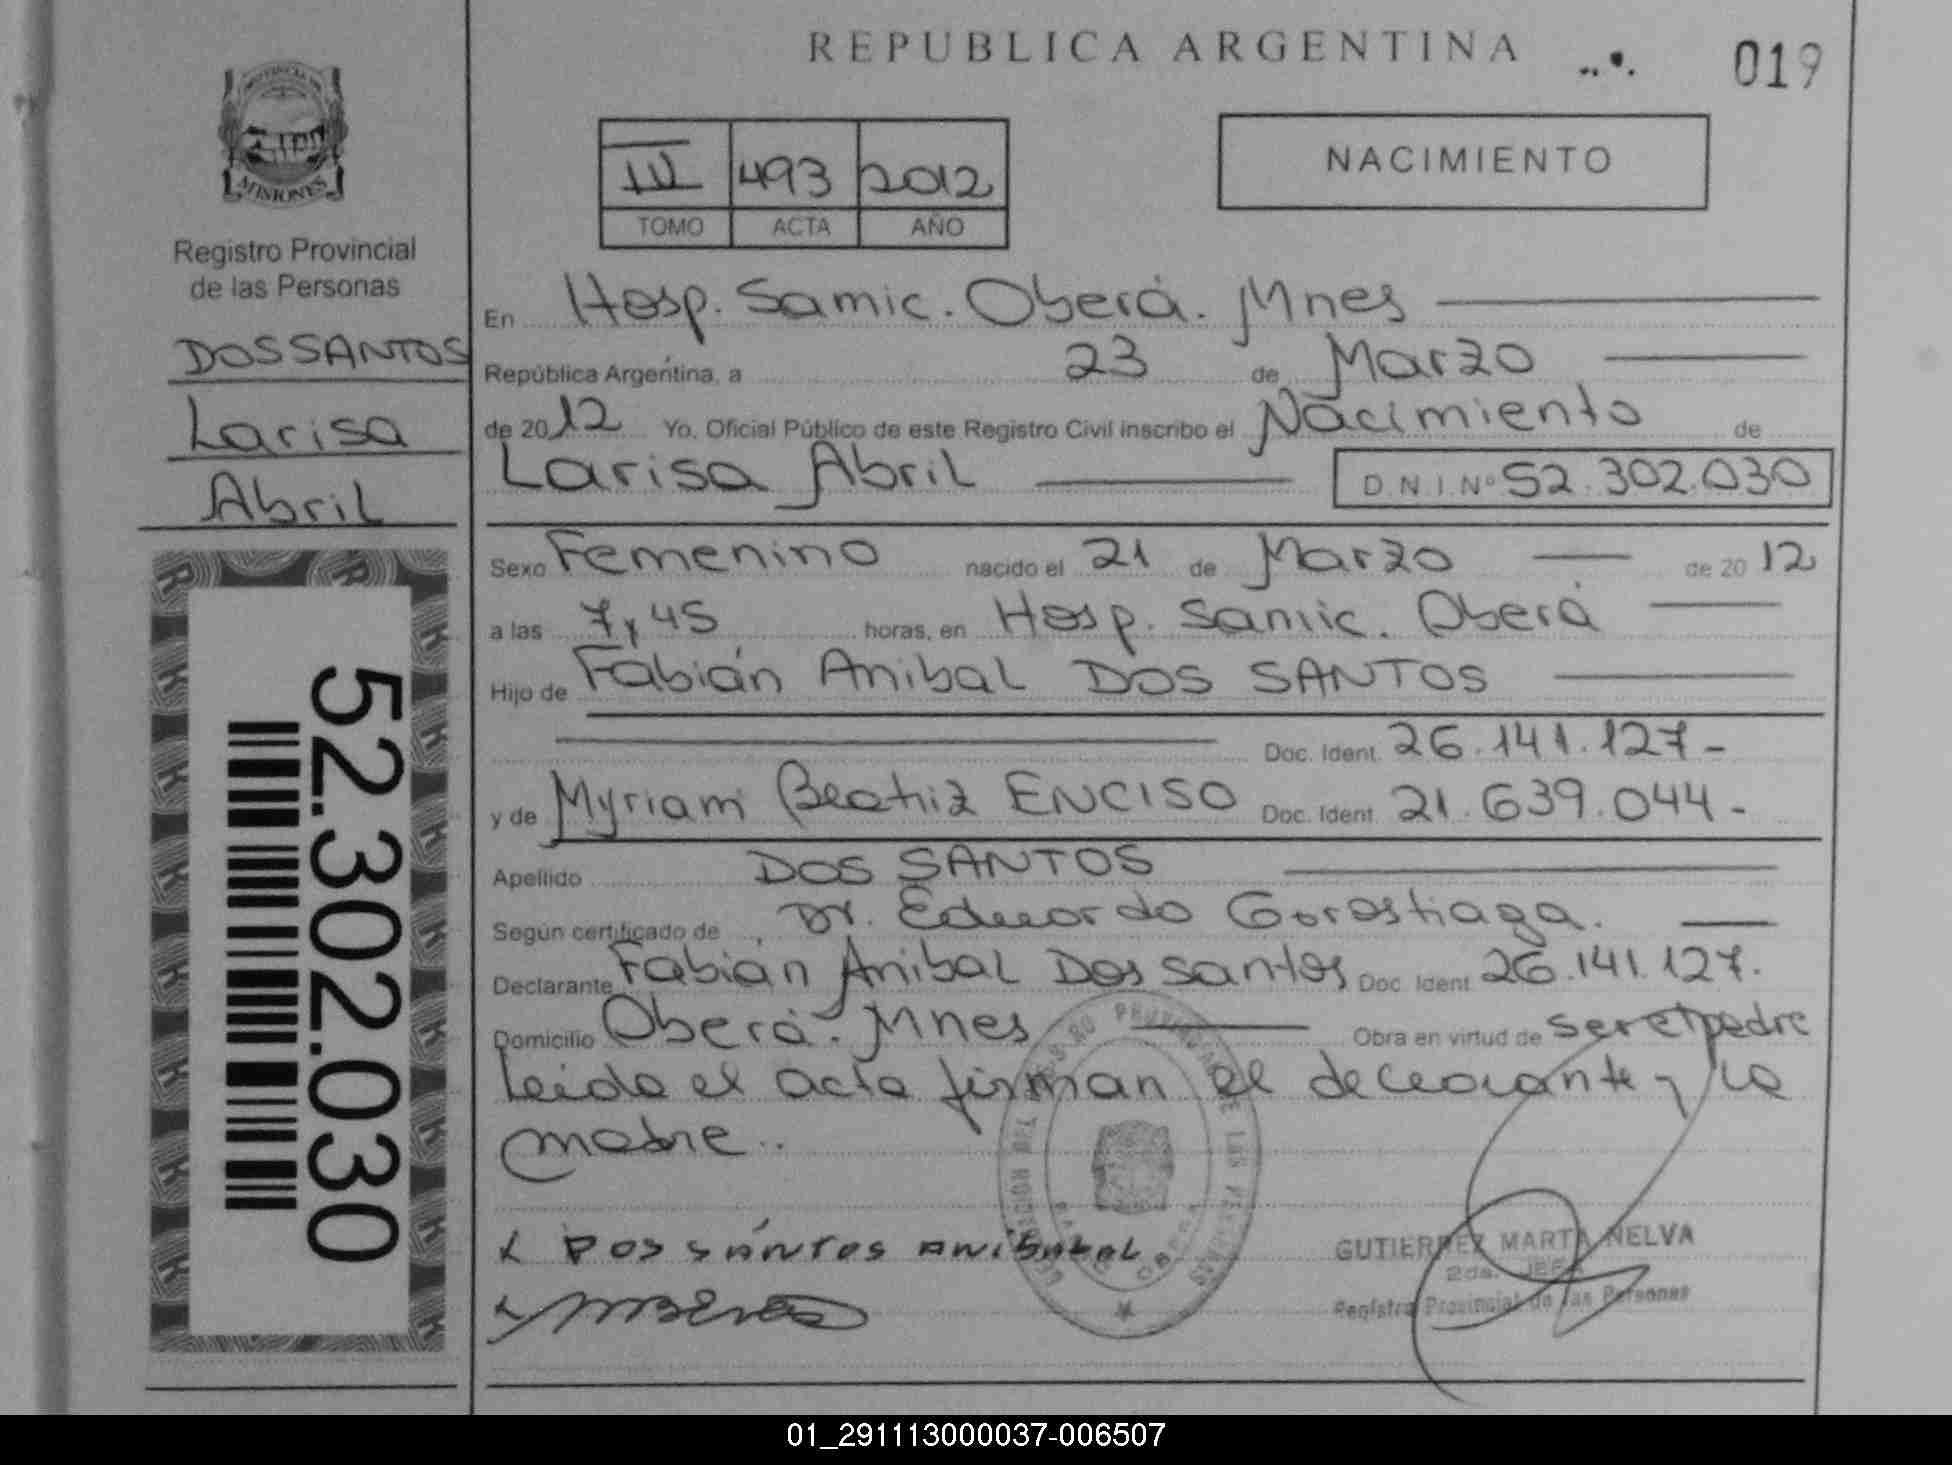 REPUBLICA ARGENTINA
019
PROVINCIA DE
MISIONES
Registro Provincial
de las Personas
DOS SANTOS
Larisa
Abril
52.302.030
III 493 2012
TOMO ACTA AÑO
NACIMIENTO
En Hosp. Samic. Oberá. Mnes
República Argentina, a 23 de Marzo
de 2012 Yo, Oficial Público de este Registro Civil inscribo el Nacimiento de
Larisa Abril D.N.I. Nº 52.302.030
Sexo Femenino nacido el 21 de Marzo de 2012
a las 7,45 horas, en Hosp. Samic. Oberá
Hijo de Fabián Anibal DOS SANTOS
Doc. Ident. 26.141.127-
y de Myriam Beatriz ENCISO Doc. Ident. 21.639.044-
Apellido DOS SANTOS
Según certificado de Dr. Eduardo Gorostiaga.
Declarante Fabián Anibal Dos Santos Doc. Ident. 26.141.127.
Domicilio Oberá. Mnes Obra en virtud de ser el padre
Leida el acta firman el declarante y la
madre.
x DOS SANTOS ANIBAL
GUTIERREZ MARTA NELVA
2da. JEFA
Registro Provincial de las Personas
01_291113000037-006507